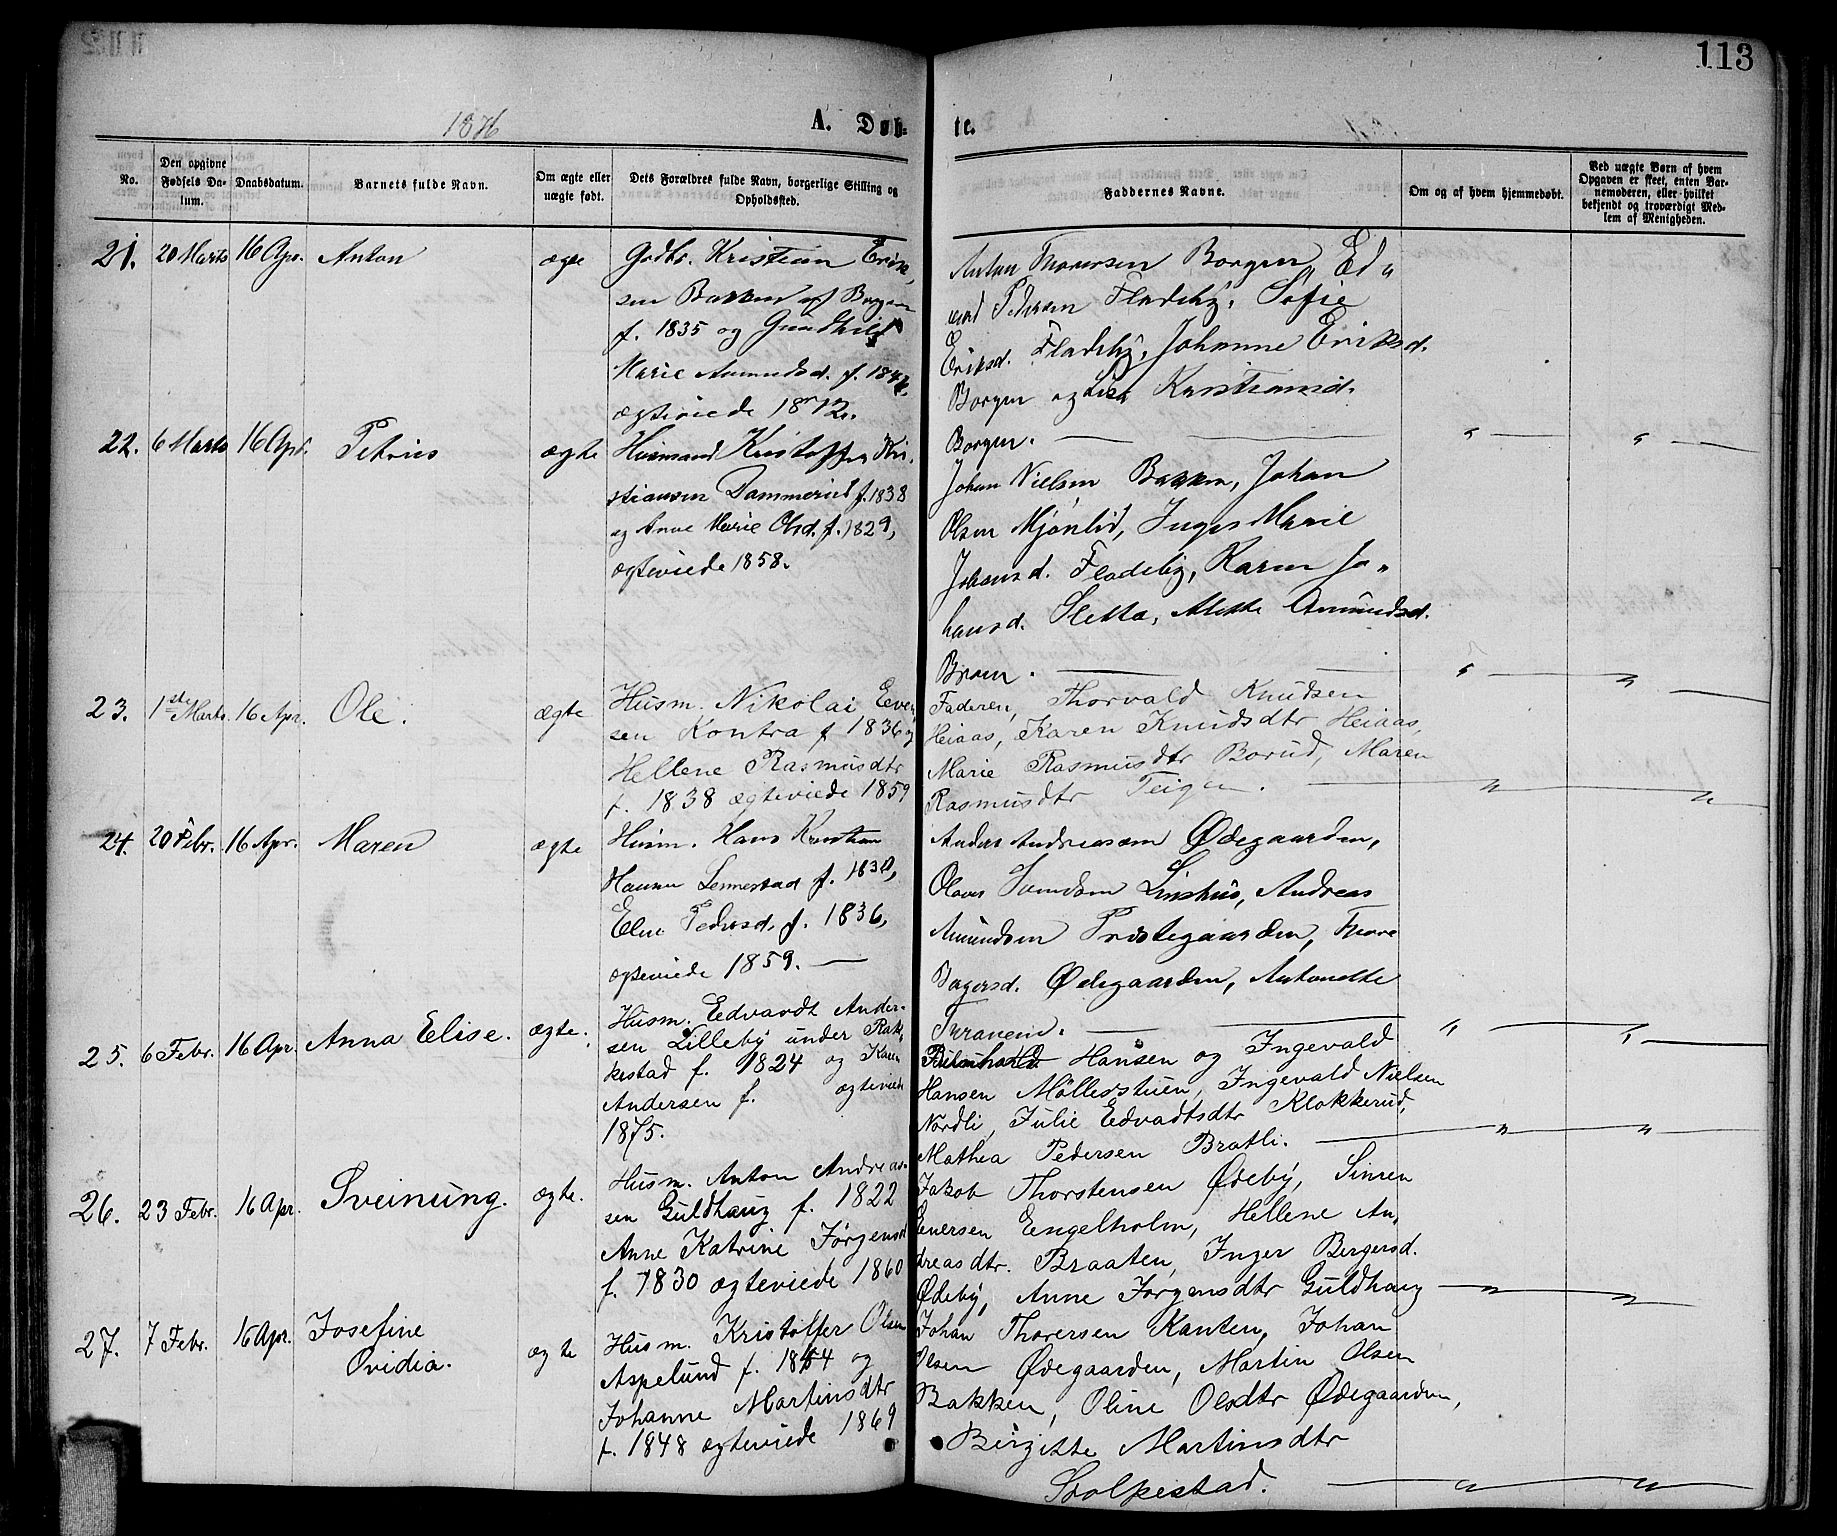 113
1876
A. Døb-
te.
No.
Den opgivne Fødsels Datum.
Daabsdatum.
Barnets fulde Navn.
Om ægte eller uægte født.
Dets Forældres fulde Navn, borgerlige Stilling og Opholdssted.
Faddernes Navne.
Om og af hvem hjemmedøbt.
Ved uægte Børn af hvem Opgaven er skeet, enten Barnemoderen, eller hvilket bekjendt og troværdigt Medlem af Menigheden.
21. 20 Marts 16 Apr. Anton ægte
Gbdbr. Kristian Erik-
sen Bakken af Borgen
f. 1835 og Gundhild
Marie Amundsd. f.
ægteviede 1872.
Anton Thoresen Borgen, Ed-
vard Pedersen Fladeby, Sofie
Eriksd. Fladeby, Johanne Eriksd.
Borgen og Kristiansd.
Borgen. — " — " —
22. 6 Marts 16 Apr. Petrius ægte
Husmand Kristoffer Kri-
stiansen Dammerud f. 1838
og Anne Marie Olsd. f. 1829,
ægteviede 1858.
Johan Nielsen Bakken, Johan
Olsen Mjønlid, Inger Marie
Johansd. Fladeby, Karen Jo-
hansd. Sletta, Mette Amundsd.
Braen. — " — " —
23. 1ste Marts. 16 Apr. Ole. ægte
Husm. Nikolai Even-
sen Kontra f 1836 og
Hellene Rasmusdtr
f. 1838 ægteviede 1859
Faderen, Thorvald Knudsen
Heiaas, Karen Knudsdtr Heiaas,
Marie Rasmusdtr Borud, Maren
Rasmusdtr Teigen. — " — "
24. 20 Febr. 16 Apr. Maren ægte
Husm. Hans Kristian
Hansen Lennestad f.
Elen Pedersd. f. 1836,
ægteviede 1859. —
Anders Andreassen Ødegaarden,
Olaves Svendsen Linshus, Andreas
Amundsen Prestegaarden, Thore
Bagersd. Ødegaarden, Antonette
Turanem. — " — " —
25. 6 Febr. 16 Apr. Anna Elise. ægte.
Husm. Edvardt Ander-
sen Lilleby under Rak-
kestad f. 1824 og Karen
Andersen f. ægteviede
1875.
Hansen og Ingevald
Hansen Møllerstuen, Ingevald Nielsen
Nordli, Julie Edvadtsdtr Klokkerud,
Mathea Pedersen Bratli. — " — " —
26. 23 Febr. 16 Apr. Sveinung. ægte.
Husm. Anton Andreas-
sen Guldhaug f. 1822
Anne Katrine Jørgensd
f. 1830 ægteviede 1860
Jakob Thorstensen Ødeby, Simen
Enersen Engelholm, Hellene An-
dreasdtr. Braaten, Inger Bergersd.
Ødeby, Anne Jørgensdtr Guldhaug — " — " —
27. 7 Febr. 16 Apr. Josefine
Ovidia. ægte
Husm. Kristoffer Olsen
Aspelund f. 1854 og
Johanne Martinsdtr
f. 1848 ægteviede 1869
Johan Thoresen Kanten, Johan
Olsen Ødegaarden, Martin Olsen
Bakken, Oline Olsdtr Ødegaarden,
Birgitte Martinsdtr
Stolpestad. — " — " —